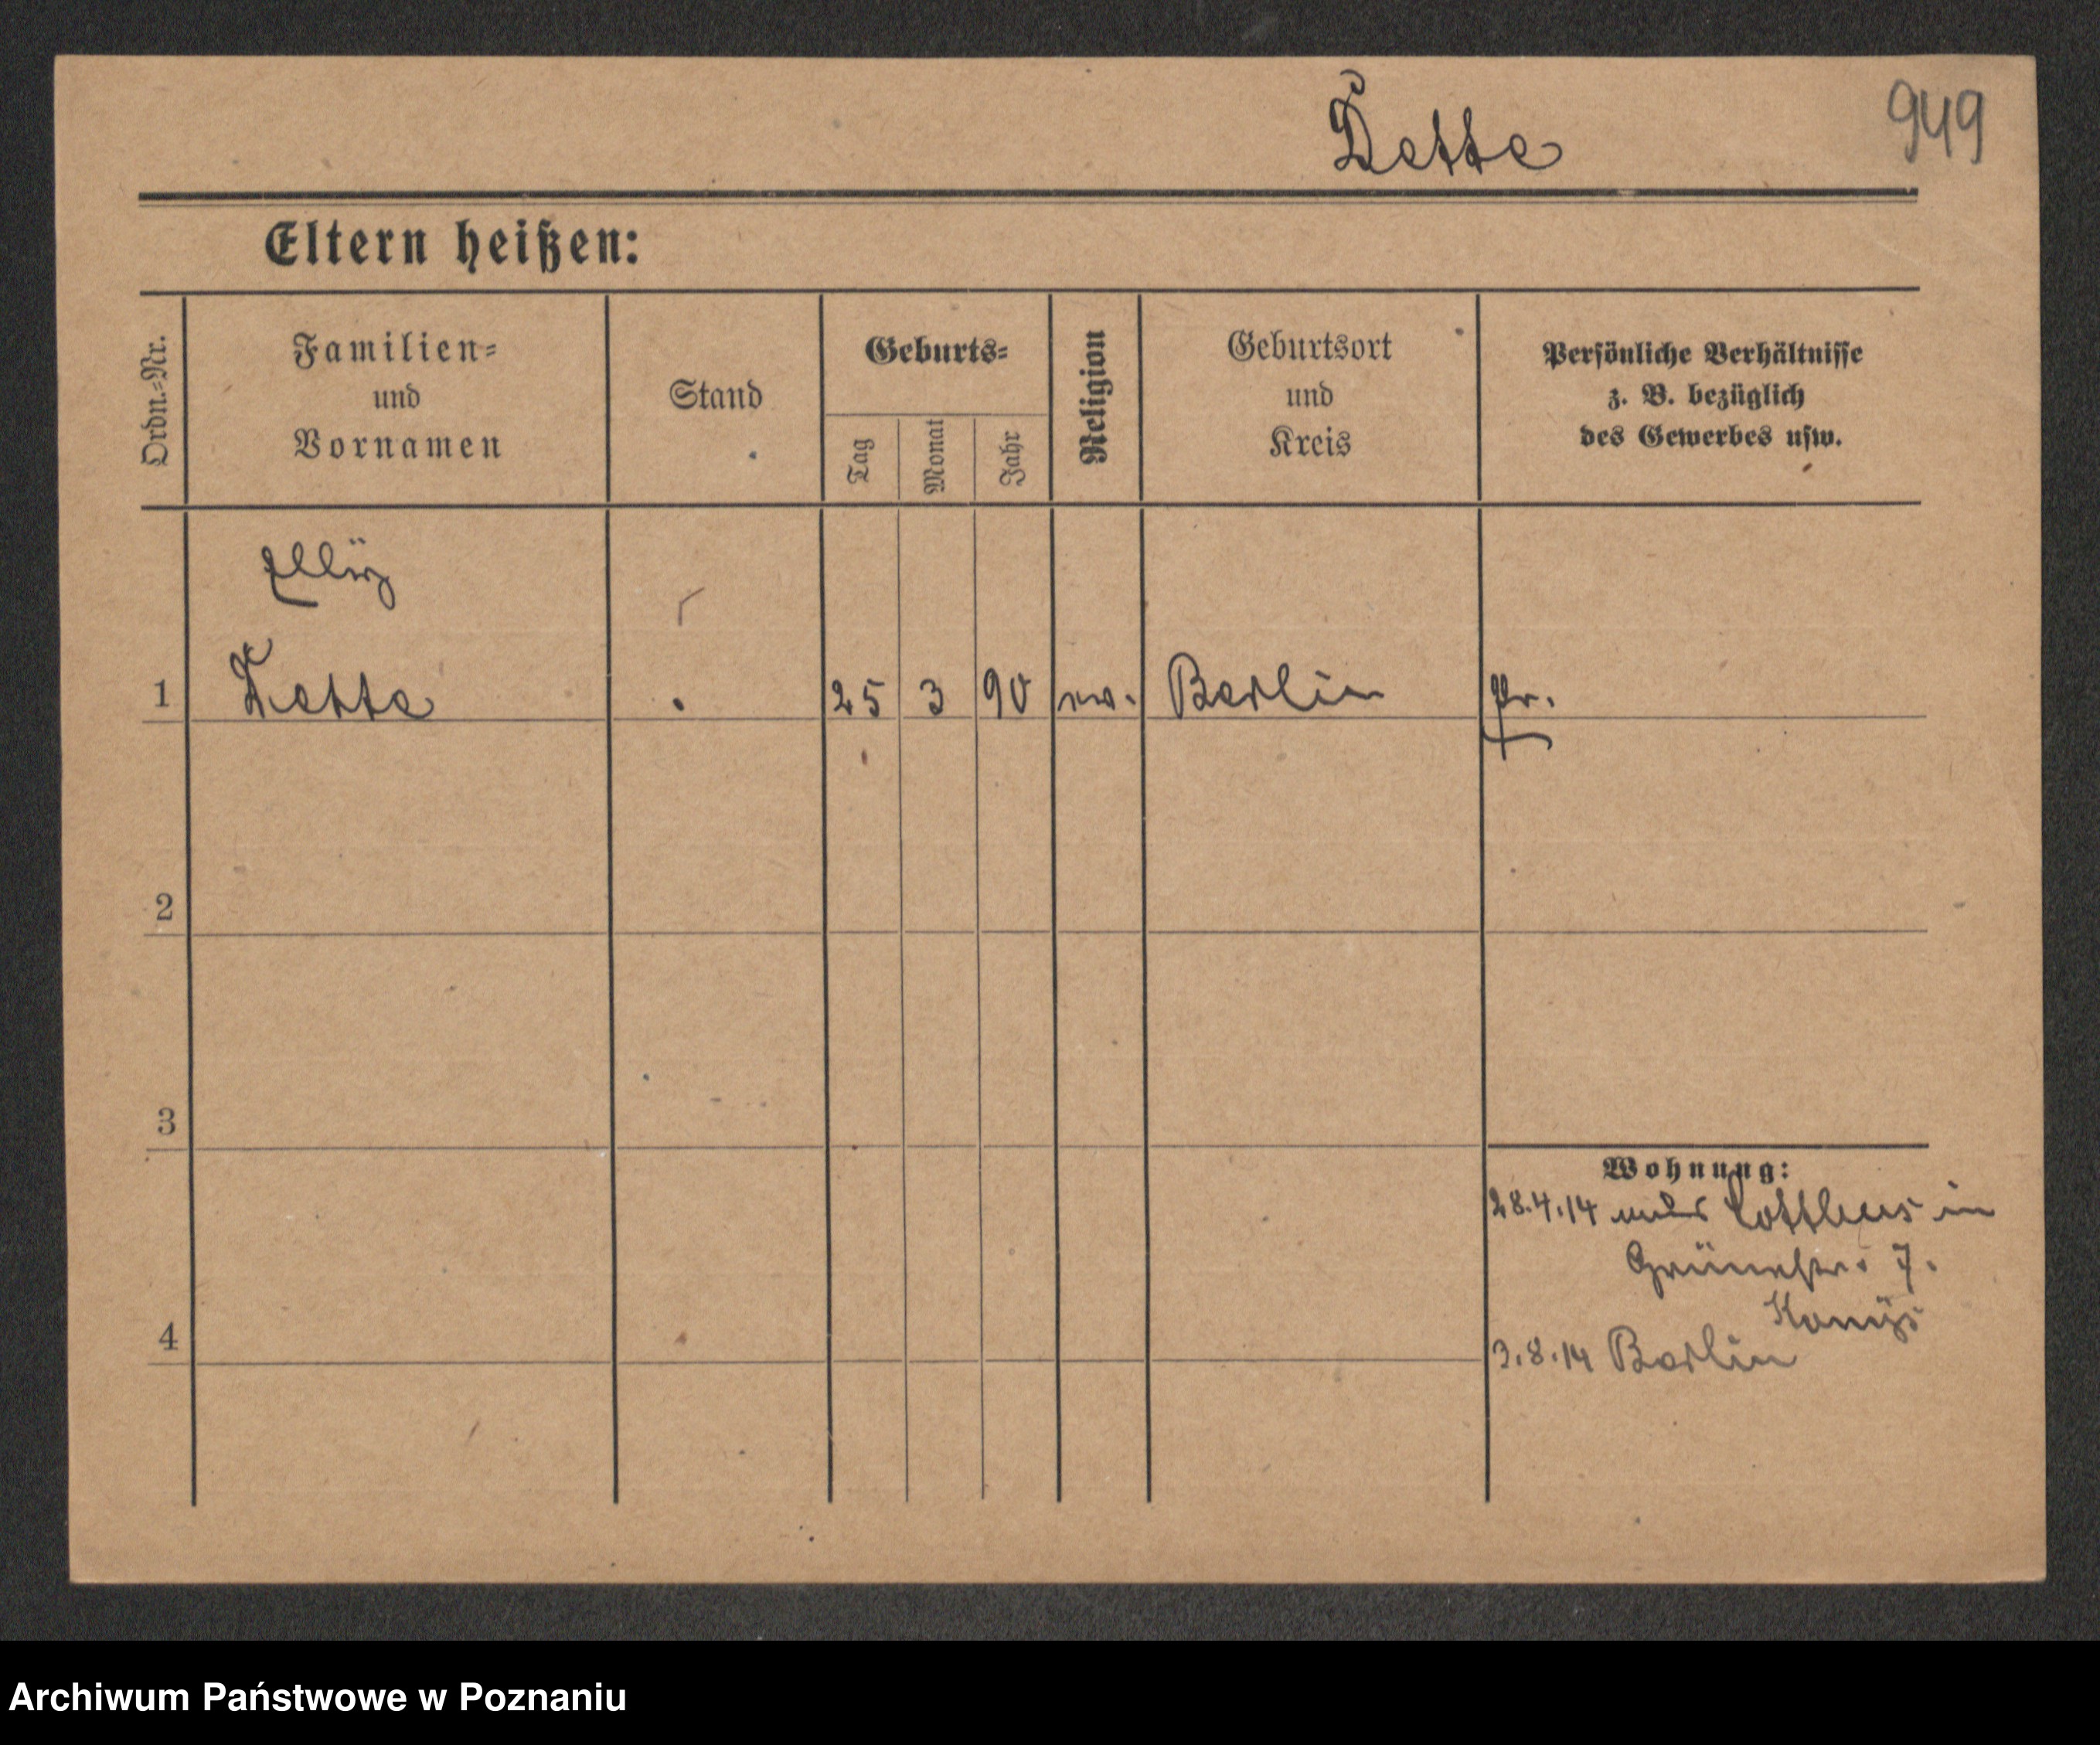 Dette
949
Eltern heißen:
Ordn.-Nr.
Familien-
und
Vornamen
Stand
Geburts-
Tag
Monat
Jahr
Religion
Geburtsort
und
Kreis
Persönliche Verhältnisse
z. B. bezüglich
des Gewerbes usw.
1
Dette
25
3
90
ev.
Berlin
Pr.
2
3
4
Wohnung:
28.4.14 Cottbus in
Grünestr. 7.
3.8.14 Berlin
Archiwum Państwowe w Poznaniu